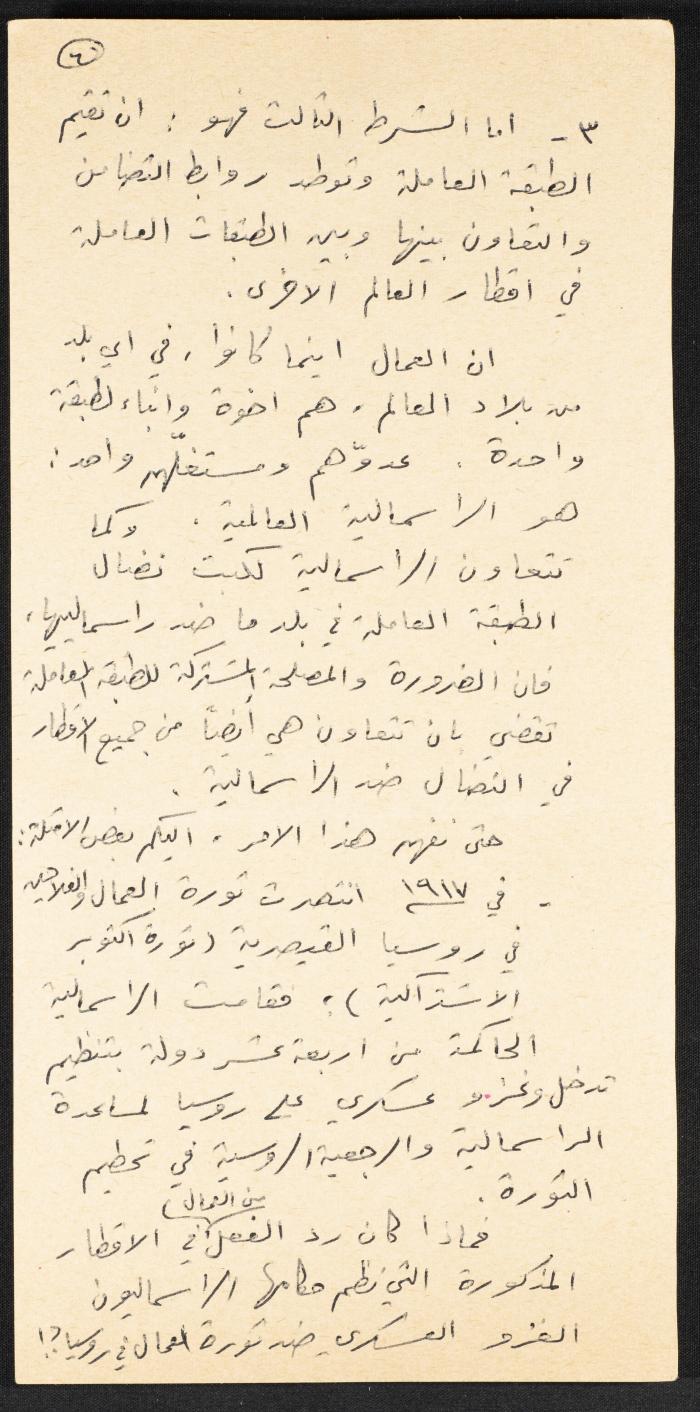 ٦
٣ - اما الشرط الثالث فهو : ان تقيم
الطبقة العاملة وتوطد روابط التضامن
والتعاون بينها وبين الطبقات العاملة
في اقطار العالم الاخرى .
ان العمال اينما كانوا ، في اي بلد
من بلاد العالم ، هم اخوة وابناء لطبقة
واحدة . عدوّهم ومستغلّهم واحد :
هو الرأسمالية العالمية . وكما
تتعاون الرأسمالية لكبت نضال
الطبقة العاملة في بلد ما ضد راسمالييها ،
فان الضرورة والمصلحة المشتركة للطبقة العاملة
تقضي بان تتعاون هي أيضاً من جميع الاقطار
في النضال ضد الرأسمالية .
حتى نفهم هذا الامر ، اليكم بعض الامثلة :
- في ١٩١٧ انتصرت ثورة العمال والفلاحين
في روسيا القيصرية ( ثورة اكتوبر
الاشتراكية ) ، فقامت الرأسمالية
الحاكمة من اربعة عشر دولة بتنظيم
تدخل وغزو عسكري على روسيا لمساعدة
الراسمالية والرجعية الروسية في تحطيم
الثورة .
فماذا كان رد الفعل (من العمال) في الاقطار
المذكورة التي نظم حكامها الرأسماليون
الغزو العسكري ضد ثورة العمال في روسيا ؟!